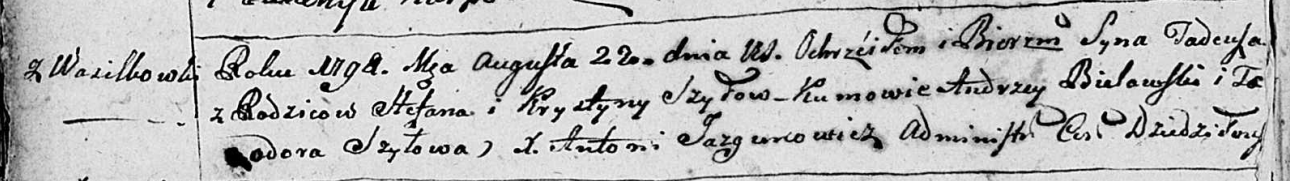 z Wasilkowki Roku 1798. Mca Augusta 22. dnia W. Ochrzciłem i Bierzm Syna Tadeusza
z Rodzicow Stefana i Krystyny Szyłow - Kumowie Andrzey Bielawski i Te
odora Szyłowa) X. Antoni Jazgunowicz Administ. Cer. Dziedziłowy